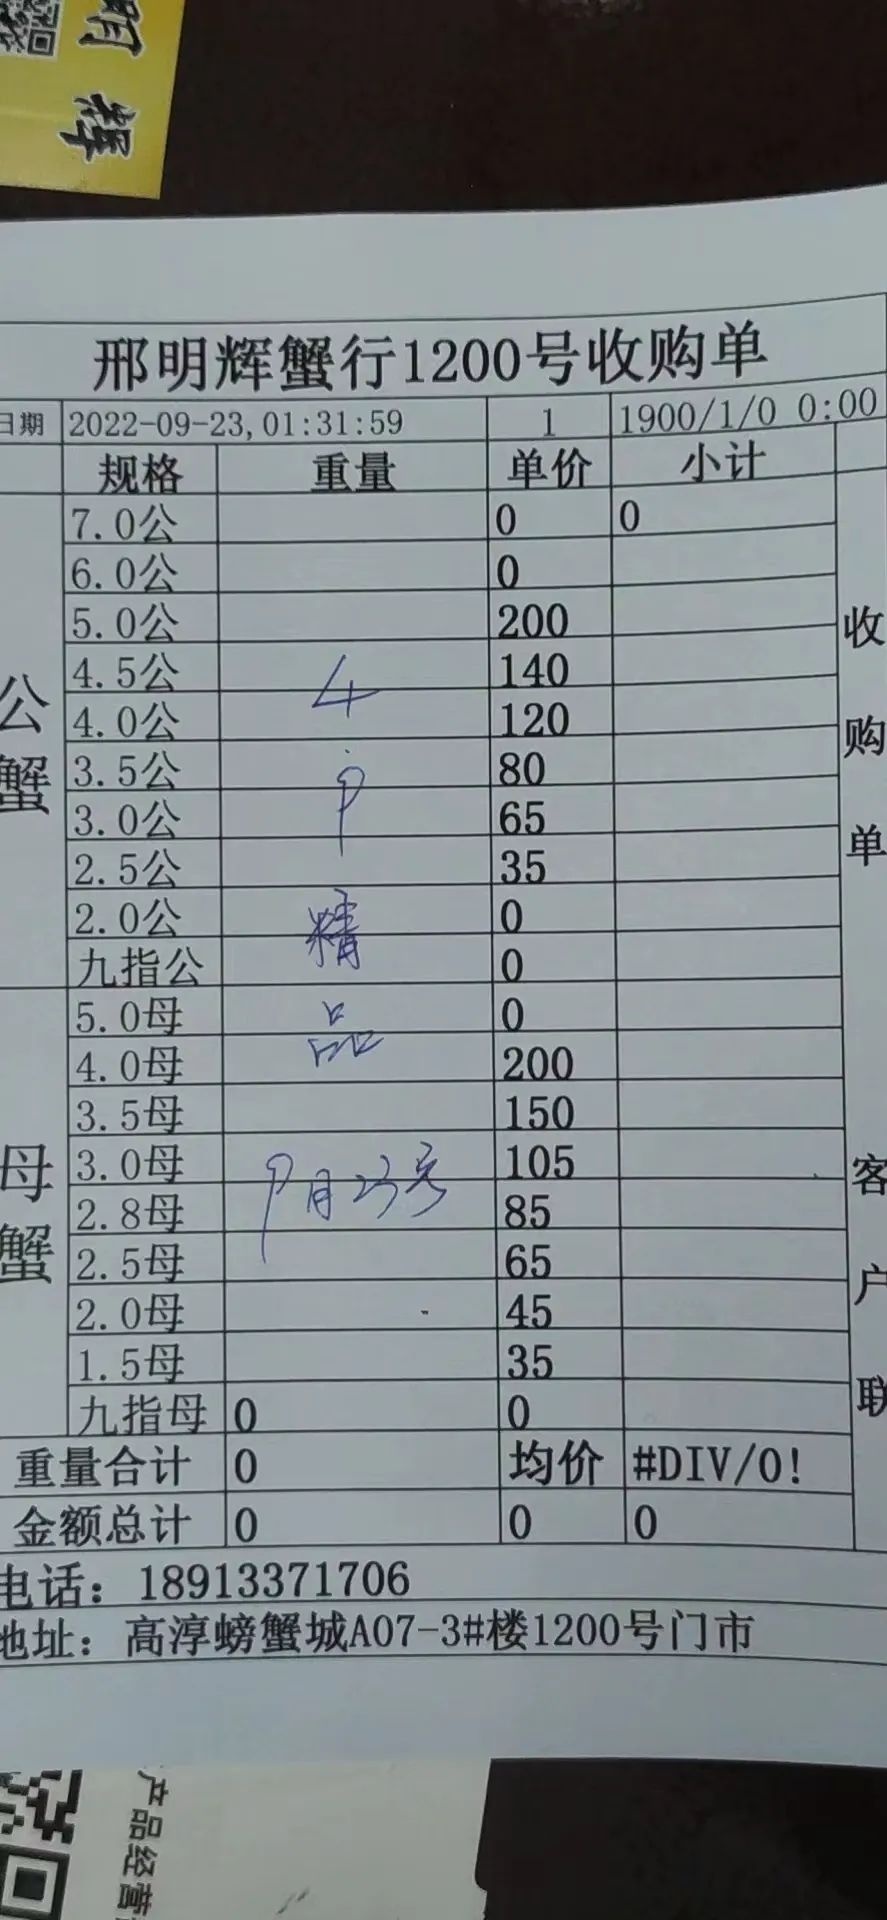 明辉
邢明辉蟹行1200号收购单
日期 2022-09-23,01:31:59 1 1900/1/0 0:00
规格 重量 单价 小计
公蟹
7.0公 0 0
6.0公 0
5.0公 200
4.5公 4 140
4.0公 120
3.5公 80
3.0公 65
2.5公 35
2.0公 精 0
九指公 0
母蟹
5.0母 品 0
4.0母 200
3.5母 150
3.0母 9月23号 105
2.8母 85
2.5母 65
2.0母 45
1.5母 35
九指母 0 0
重量合计 0 均价 #DIV/0!
金额总计 0 0 0
收购单
客户联
电话：18913371706
地址：高淳螃蟹城A07-3#楼1200号门市
产品经营